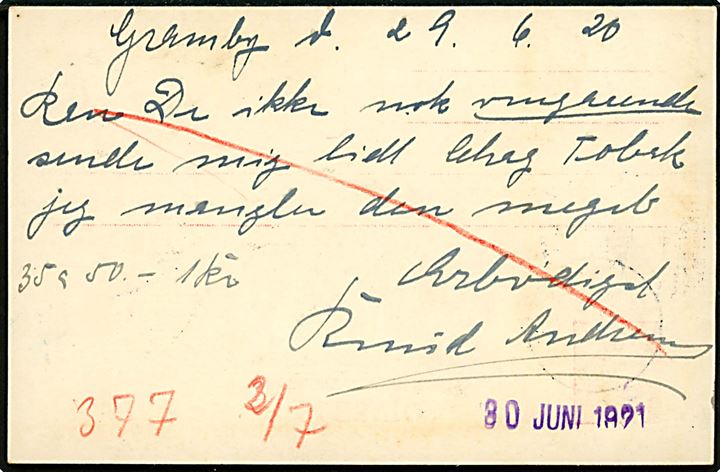 Gramby d. 29. 6. 20
Kan De ikke nok omgaaende
sende mig lidt Skrag Tobak
jeg mangler den meget
35 a 50. - 1 Kr
Ærbødigst
Knud Andersen
377 2/7
30 JUNI 1921